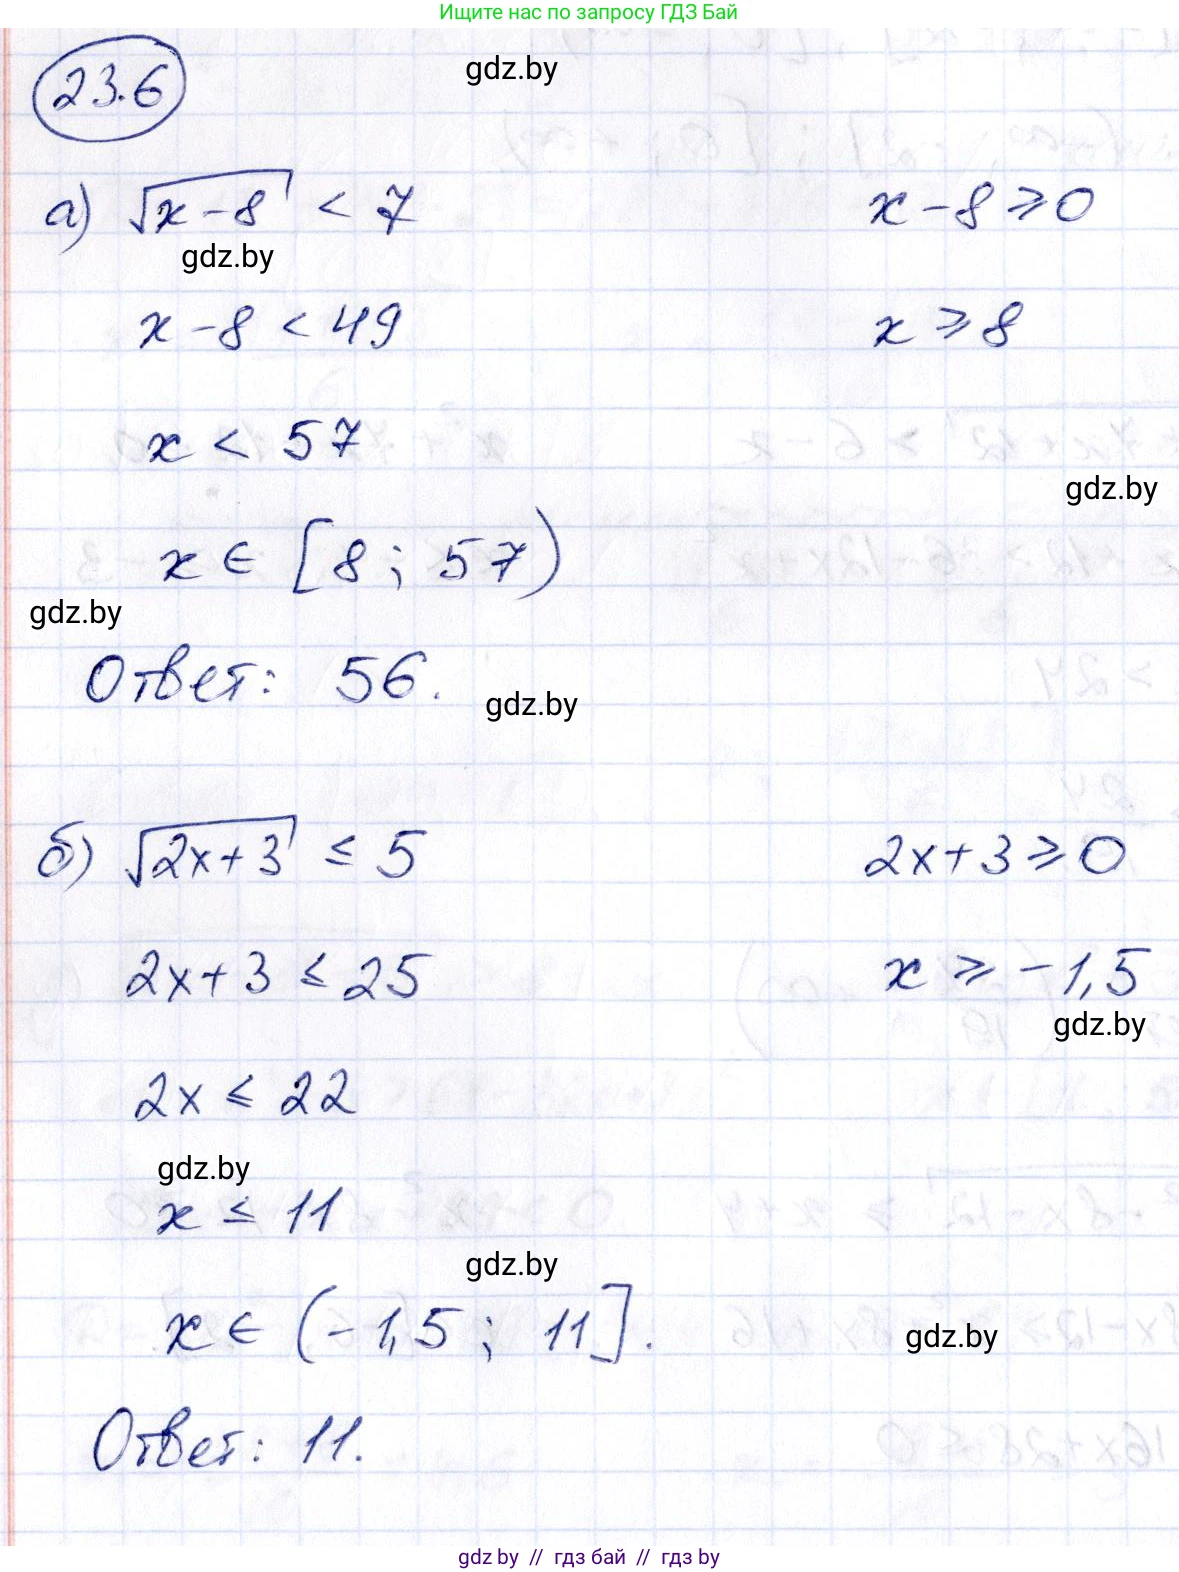 Ищите нас по запросу ГДЗ Бай
23.6
gdz.by
а) √(x-8) < 7    x-8 ⩾ 0
gdz.by
x-8 < 49    x ⩾ 8
x < 57
gdz.by
x ∈ [8; 57)
gdz.by
Ответ: 56.
gdz.by
б) √(2x+3) ≤ 5    2x+3 ⩾ 0
2x+3 ≤ 25    x ⩾ -1,5
gdz.by
2x ≤ 22
gdz.by
x ≤ 11
gdz.by
x ∈ (-1,5; 11].
gdz.by
Ответ: 11.
gdz by // гдз бай // gdz by